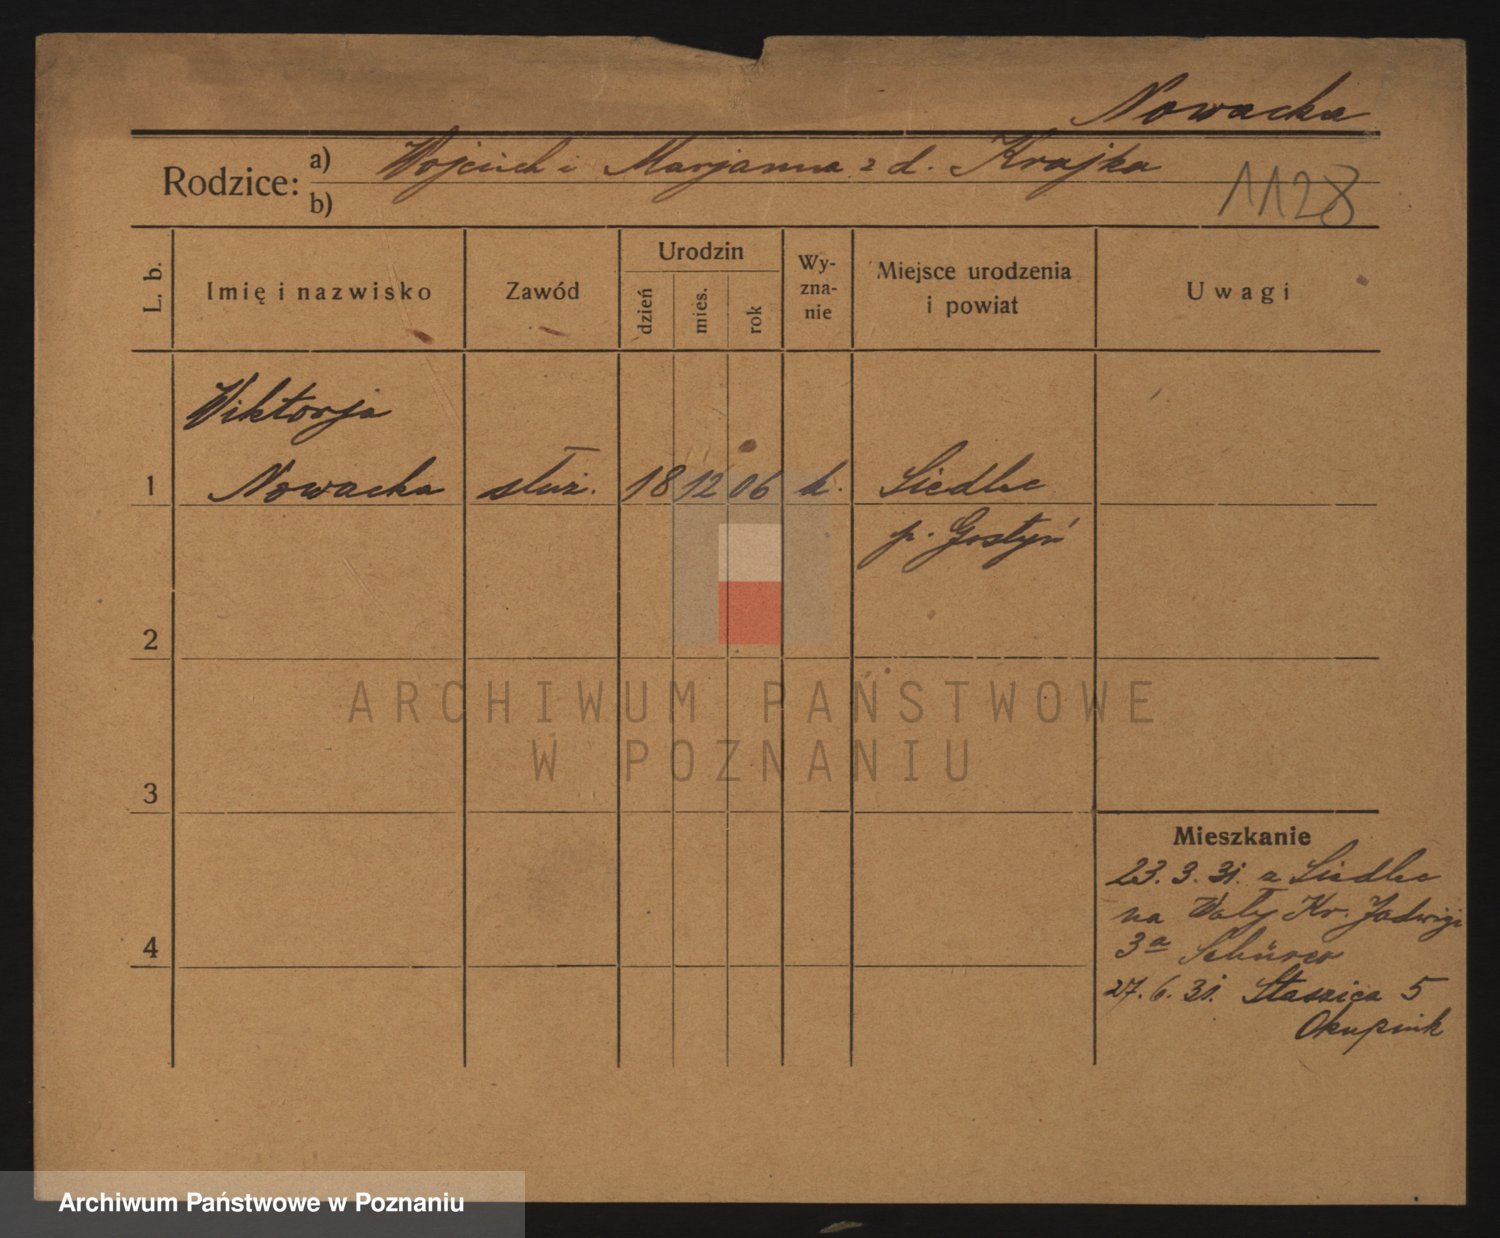 Nowacka
Rodzice: a) Wojciech i Marjanna z d. Krajka
b)
1128
L. b.
Imię i nazwisko
Zawód
Urodzin
dzień
mies.
rok
Wy-
zna-
nie
Miejsce urodzenia
i powiat
Uwagi
Wiktorja
1 Nowacka służ. 18 12 06 k. Siedlec
p. Gostyń
2
3
4
Mieszkanie
23. 3. 31. z Siedlec
na Wały Kr. Jadwigi
3a
27. 6. 31. Staszica 5
ARCHIWUM PAŃSTWOWE
W POZNANIU
Archiwum Państwowe w Poznaniu